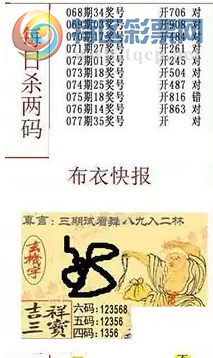 彩票网
068期34奖号 开706 对
开908 对
070期17奖号 开484 对
071期27奖号 开261 对
072期01奖号 开245 对
073期18奖号 开504 对
074期25奖号 开487 对
075期18奖号 开816 错
076期14奖号 开863 对
077期35奖号 开 对
每日杀两码
布衣快报
真言：三期试看舞八九入二林
玄機字
吉祥
三寶
六码：123568
五码：12356
四码：1356